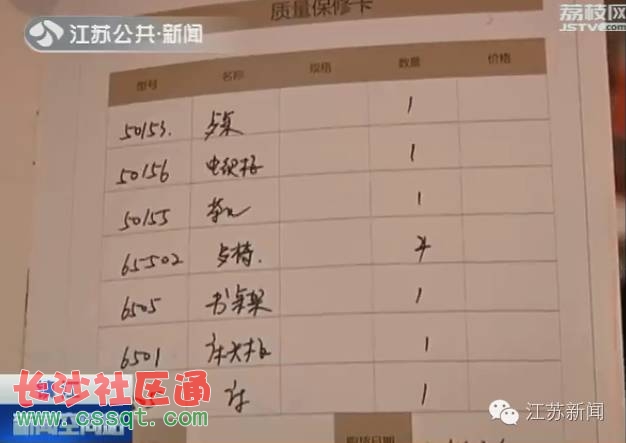 质量保修卡
荔枝网
JSTV.com
江苏公共·新闻
型号 名称 规格 数量 价格
50153. 1
50156 电视柜 1
50155 茶几 1
65502 4
6505 书桌架 1
6501 床头柜 1
床 1
长沙社区通
www.cssqt.com
江苏新闻
购货日期